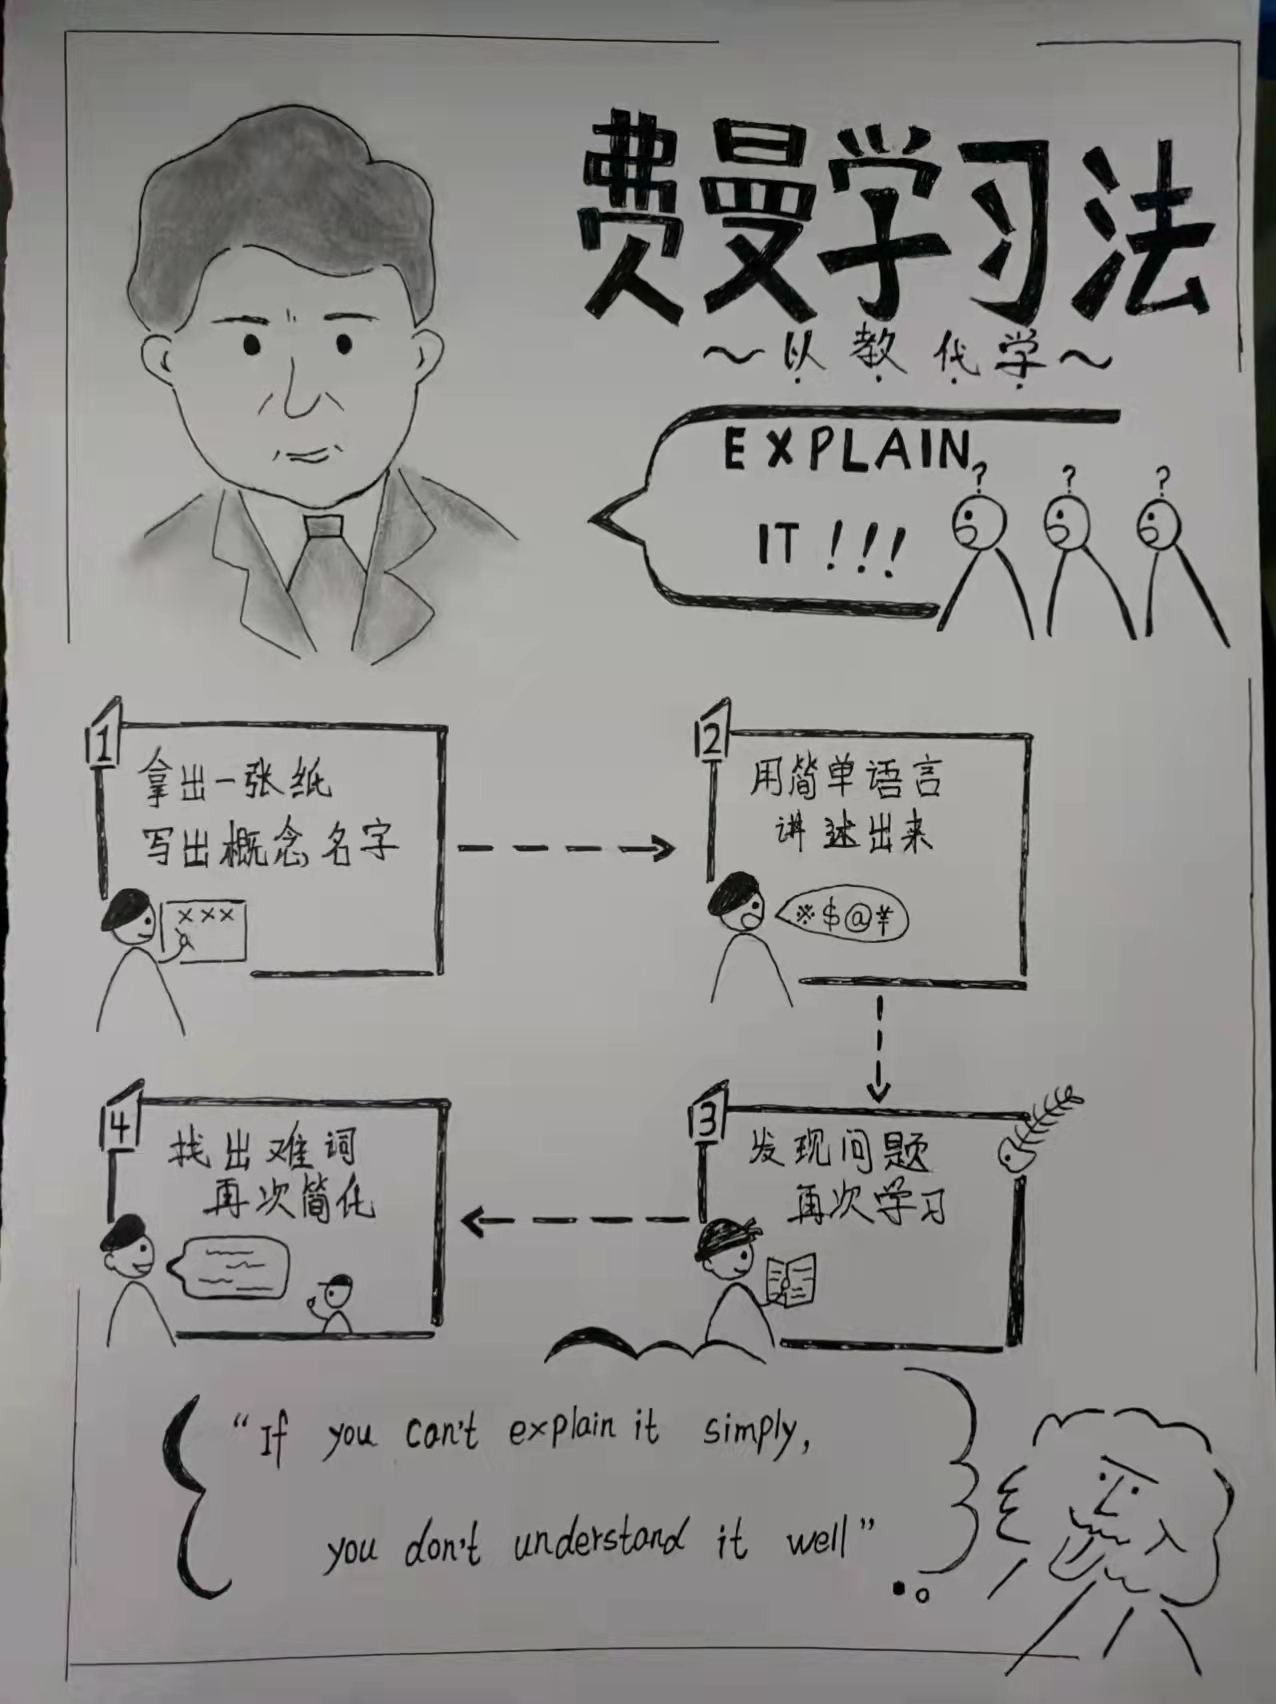 费曼学习法
～以教代学～
EXPLAIN
IT!!!
? ? ?
1
拿出一张纸
写出概念名字
×××
2
用简单语言
讲述出来
※$@¥
3
发现问题
再次学习
4
找出难词
再次简化
“If you can't explain it simply,
you don't understand it well”